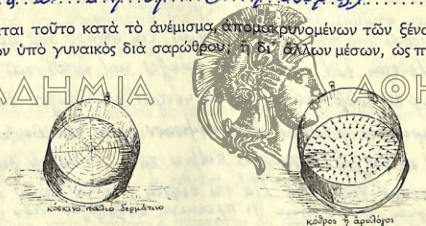 ται τοῦτο κατὰ τὸ ἀνέμισμα, ἀπομακρυνομένων τῶν ξένω
ν ὑπὸ γυναικὸς διὰ σαρώθρου, ἢ δι' ἄλλων μέσων, ὡς π
ΑΔΗΜΙΑ ΑΘΗ
κόσκινο παλιὸ δερμάτινο
κόθρος ἢ ἀρυλόγος